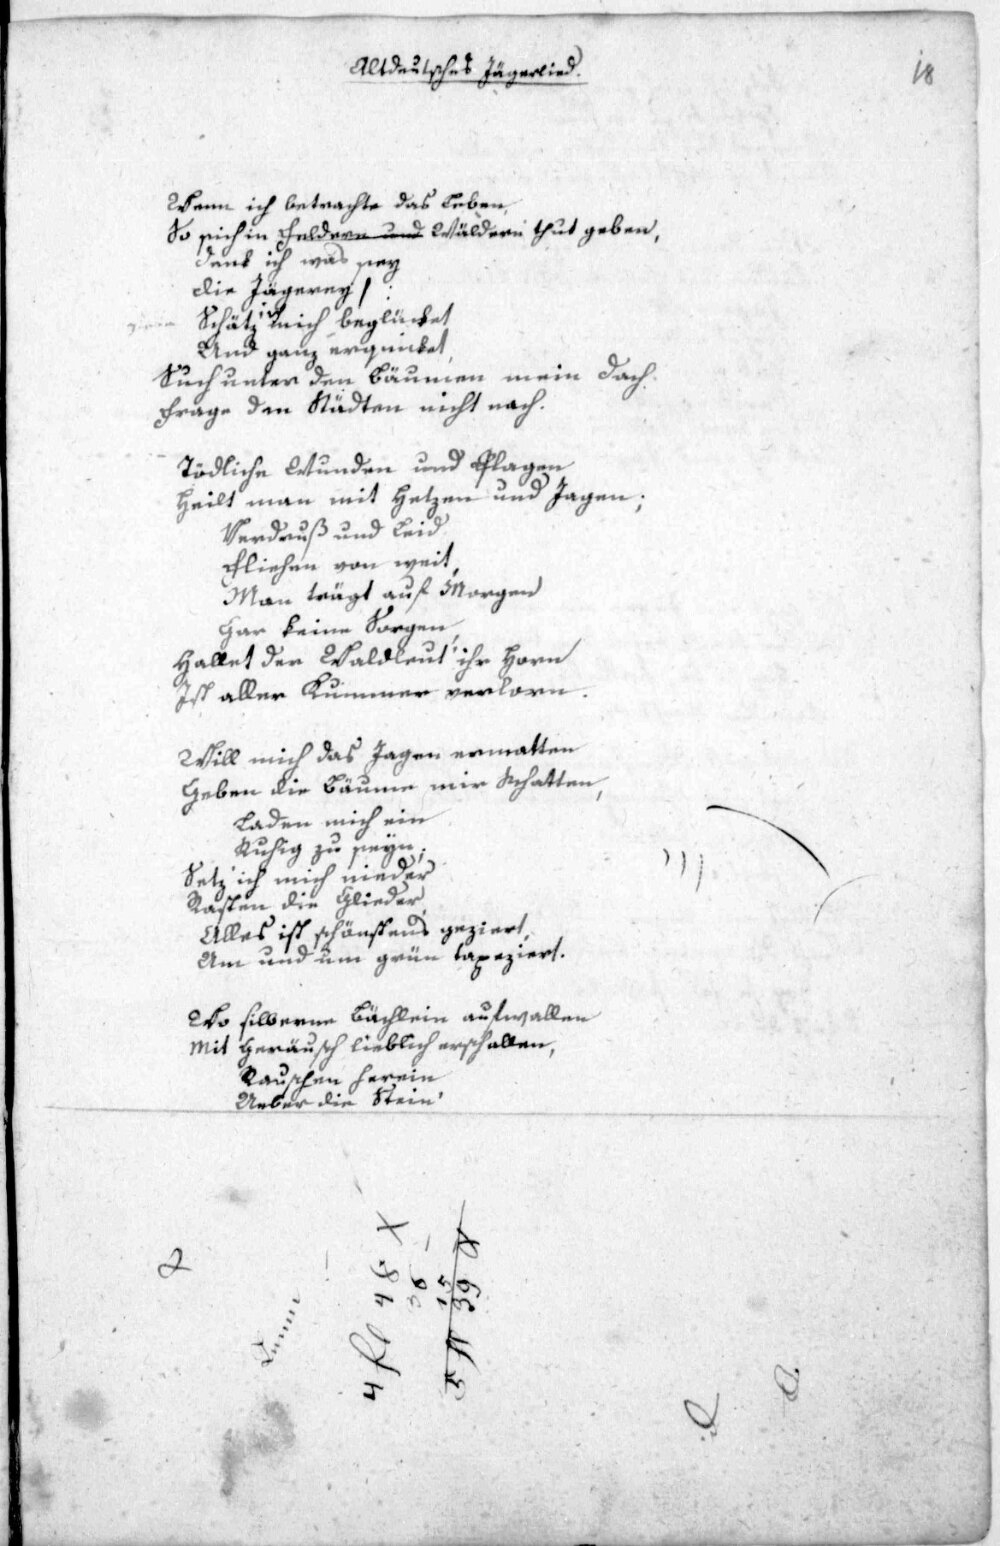 Altdeutsches Jägerlied.
18
Wenn ich betrachte das Leben,
So sich in Feldern und Wäldern thut geben,
denk ich was sey
die Jägerey!
Schätz ich mich beglücket
Und ganz erquicket,
Such unter den Bäumen mein Dach
Frage den Städten nicht nach.
Tödliche Wunden und Plagen
Heilt man mit Hetzen und Jagen;
Verdruß und Leid
Fliehen von weit,
Man trägt auf Morgen
Gar keine Sorgen,
Hallet der Waldleut' ihr Horn
Ist aller Kummer verlorn.
Will mich das Jagen ermatten
Geben die Bäume mir Schatten,
Laden mich ein
Ruhig zu seyn;
Setz ich mich nieder
Rasten die Glieder,
Alles ist schönstens geziert,
Um und um grün tapeziert.
Wo silberne Bächlein aufwallen
Mit Geräusch lieblich erschallen,
Rauschen herein
Ueber die Stein'
4 fl 48 X
36
15
5 fl 39 X